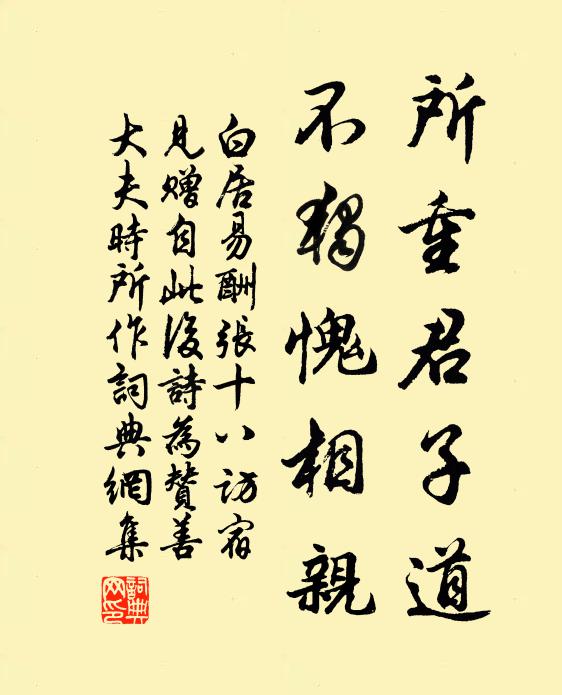 所重君子道
不獨愧相親
白居易酬張十八訪宿
見贈自此後詩為贊善
大夫時所作詞典網集
詞典
网印